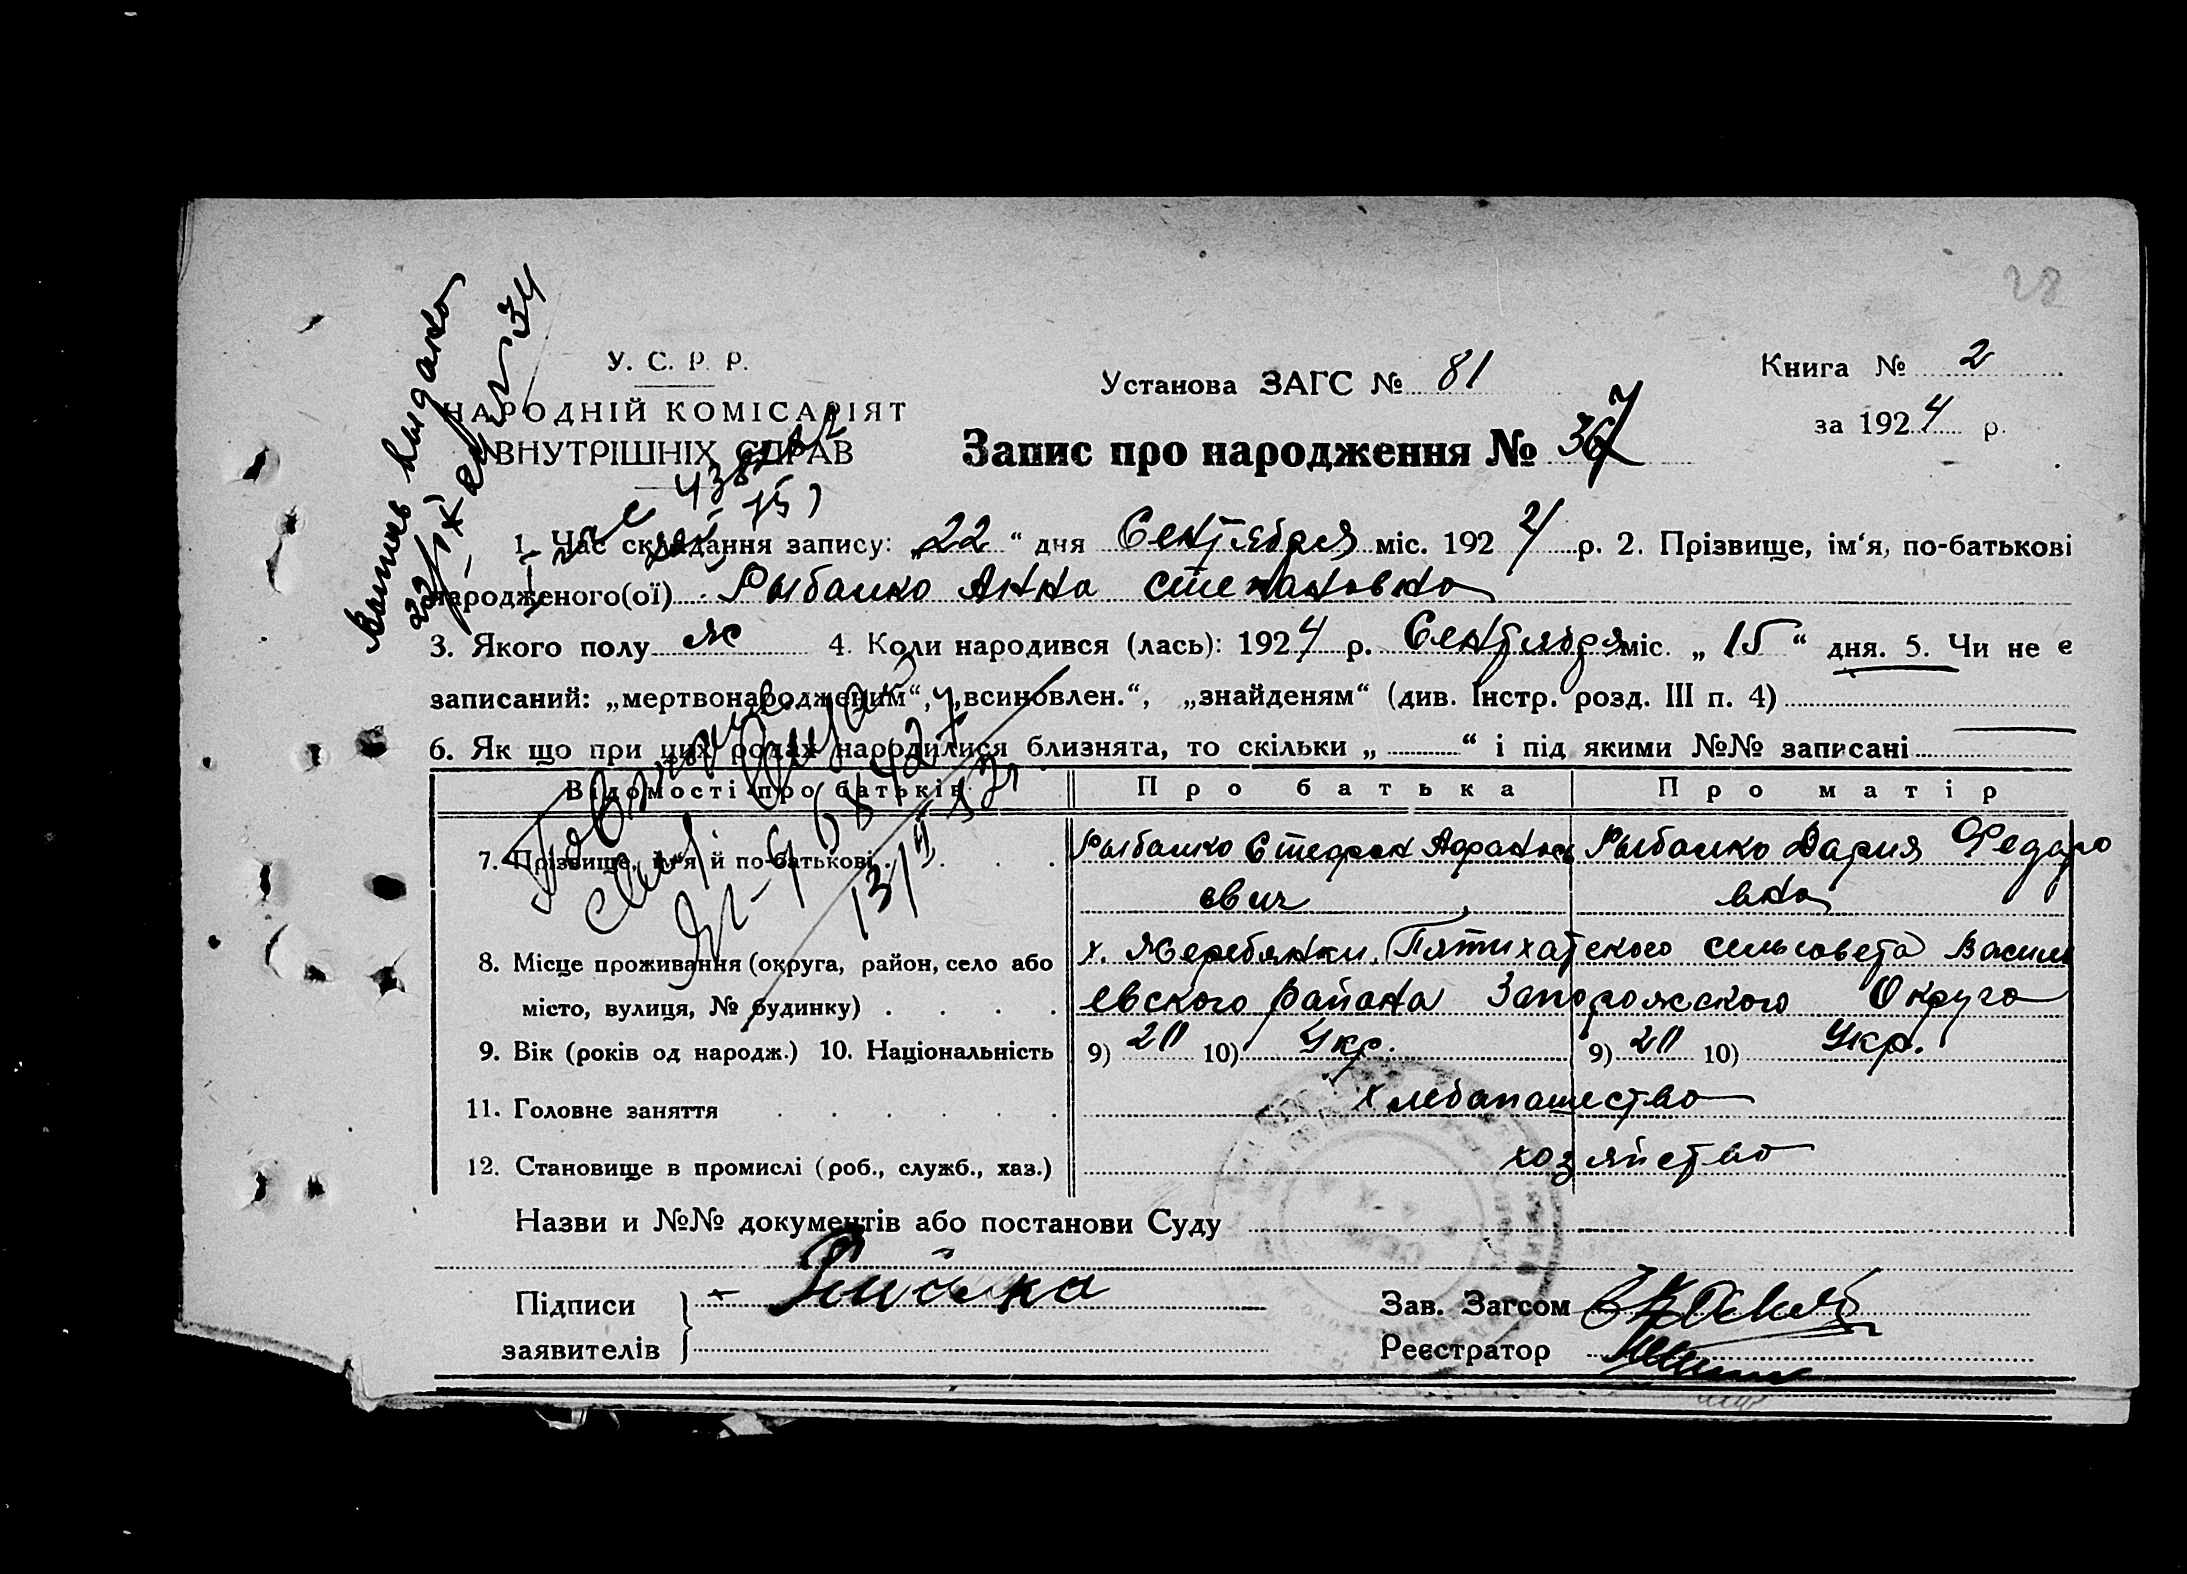 28
У. С. Р. Р.
НАРОДНІЙ КОМІСАРІЯТ
ВНУТРІШНІХ СПРАВ
Установа ЗАГС № 81
Книга № 2
за 1924 р.
Запис про народження № 367
1. Час складання запису: „22“ дня Сентября міс. 1924 р. 2. Прізвище, ім‘я, по-батькові
народженого(ої) Рыбалко Анна Степановна
3. Якого полу ж 4. Коли народився (лась): 1924 р. Сентября міс. „15“ дня. 5. Чи не є
записаний: „мертвонародженим“, „всиновлен.“, „знайденям“ (див. Інстр. розд. III п. 4)
6. Як що при цих родах народилися близнята, то скільки „ “ і під якими №№ записані
Відомості про батьків Про батька Про матір
7. Прізвище, ім‘я й по-батькові Рыбалко Стефан Афанась Рыбалко Дария Федоро
евич вна
8. Місце проживання (округа, район, село або х. Жеребянки, Пятихатского сельсовета Василь
місто, вулиця, № будинку) евского района Запорожского Округа
9. Вік (років од народж.) 10. Національність 9) 20 10) Укр. 9) 20 10) Укр.
11. Головне заняття хлебопашество
12. Становище в промислі (роб., служб., хаз.) хозяйство
Назви и №№ документів або постанови Суду
Підписи
заявителів
Зав. Загсом
Реєстратор